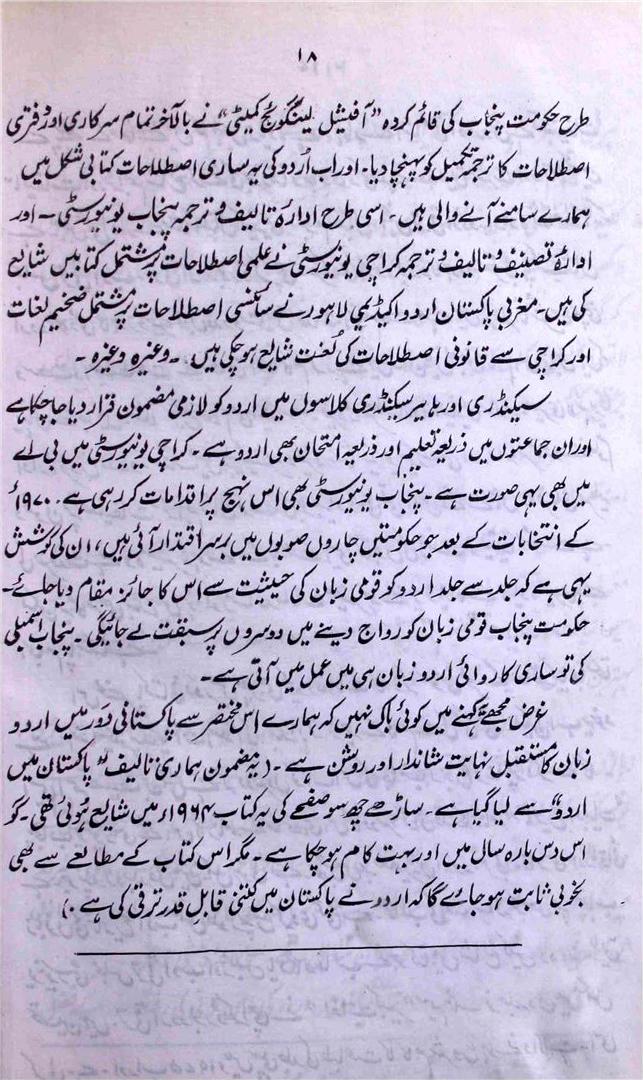 ۱۸
طرح حکومت پنجاب کی قائم کردہ "آفیشل لینگوئج کمیٹی" نے بالآخر تمام سرکاری اور دفتری
اصطلاحات کا ترجمہ تکمیل کو پہنچا دیا۔ اور اب اُردو کی یہ ساری اصطلاحات کتابی شکل میں
ہمارے سامنے آنے والی ہیں۔ اسی طرح ادارۂ تالیف و ترجمہ پنجاب یونیورسٹی – اور
ادارۂ تصنیف و تالیف و ترجمہ کراچی یونیورسٹی نے علمی اصطلاحات پر مشتمل کتابیں شایع
کی ہیں۔ مغربی پاکستان اردو اکیڈیمی لاہور نے سائنسی اصطلاحات پر مشتمل ضخیم لغات
اور کراچی سے قانونی اصطلاحات کی لُغت شایع ہو چکی ہیں۔ وغیرہ وغیرہ۔
سیکنڈری اور ہایر سیکنڈری کلاسوں میں اردو کو لازمی مضمون قرار دیا جا چکا ہے
اور ان جماعتوں میں ذریعہ تعلیم اور ذریعہ امتحان بھی اردو ہے۔ کراچی یونیورسٹی میں بی اے
میں بھی یہی صورت ہے۔ پنجاب یونیورسٹی بھی اس نہج پر اقدامات کر رہی ہے۔ ۱۹۷۰ء
کے انتخابات کے بعد جو حکومتیں چاروں صوبوں میں برسر اقتدار آئی ہیں، ان کی کوشش
یہی ہے کہ جلد سے جلد اردو کو قومی زبان کی حیثیت سے اس کا جائز مقام دیا جائے۔
حکومت پنجاب قومی زبان کو رواج دینے میں دوسروں پر سبقت لے جائیگی۔ پنجاب اسمبلی
کی تو ساری کاروائی اردو زبان ہی میں عمل میں آتی ہے۔
غرض مجھے یہ کہنے میں کوئی باک نہیں کہ ہمارے اس مختصر سے پاکستانی دَور میں اردو
زبان کا مستقبل نہایت شاندار اور روشن ہے۔ (یہ مضمون ہماری تالیف "پاکستان میں
اردو" سے لیا گیا ہے۔ ساڑھے چھ سو صفحے کی یہ کتاب ۱۹۶۴ء میں شایع ہوئی تھی۔ گو
اس دس بارہ سال میں اور بہت کام ہو چکا ہے۔ مگر اس کتاب کے مطالعے سے بھی
بخوبی ثابت ہو جائے گا کہ اردو نے پاکستان میں کتنی قابلِ قدر ترقی کی ہے۔)